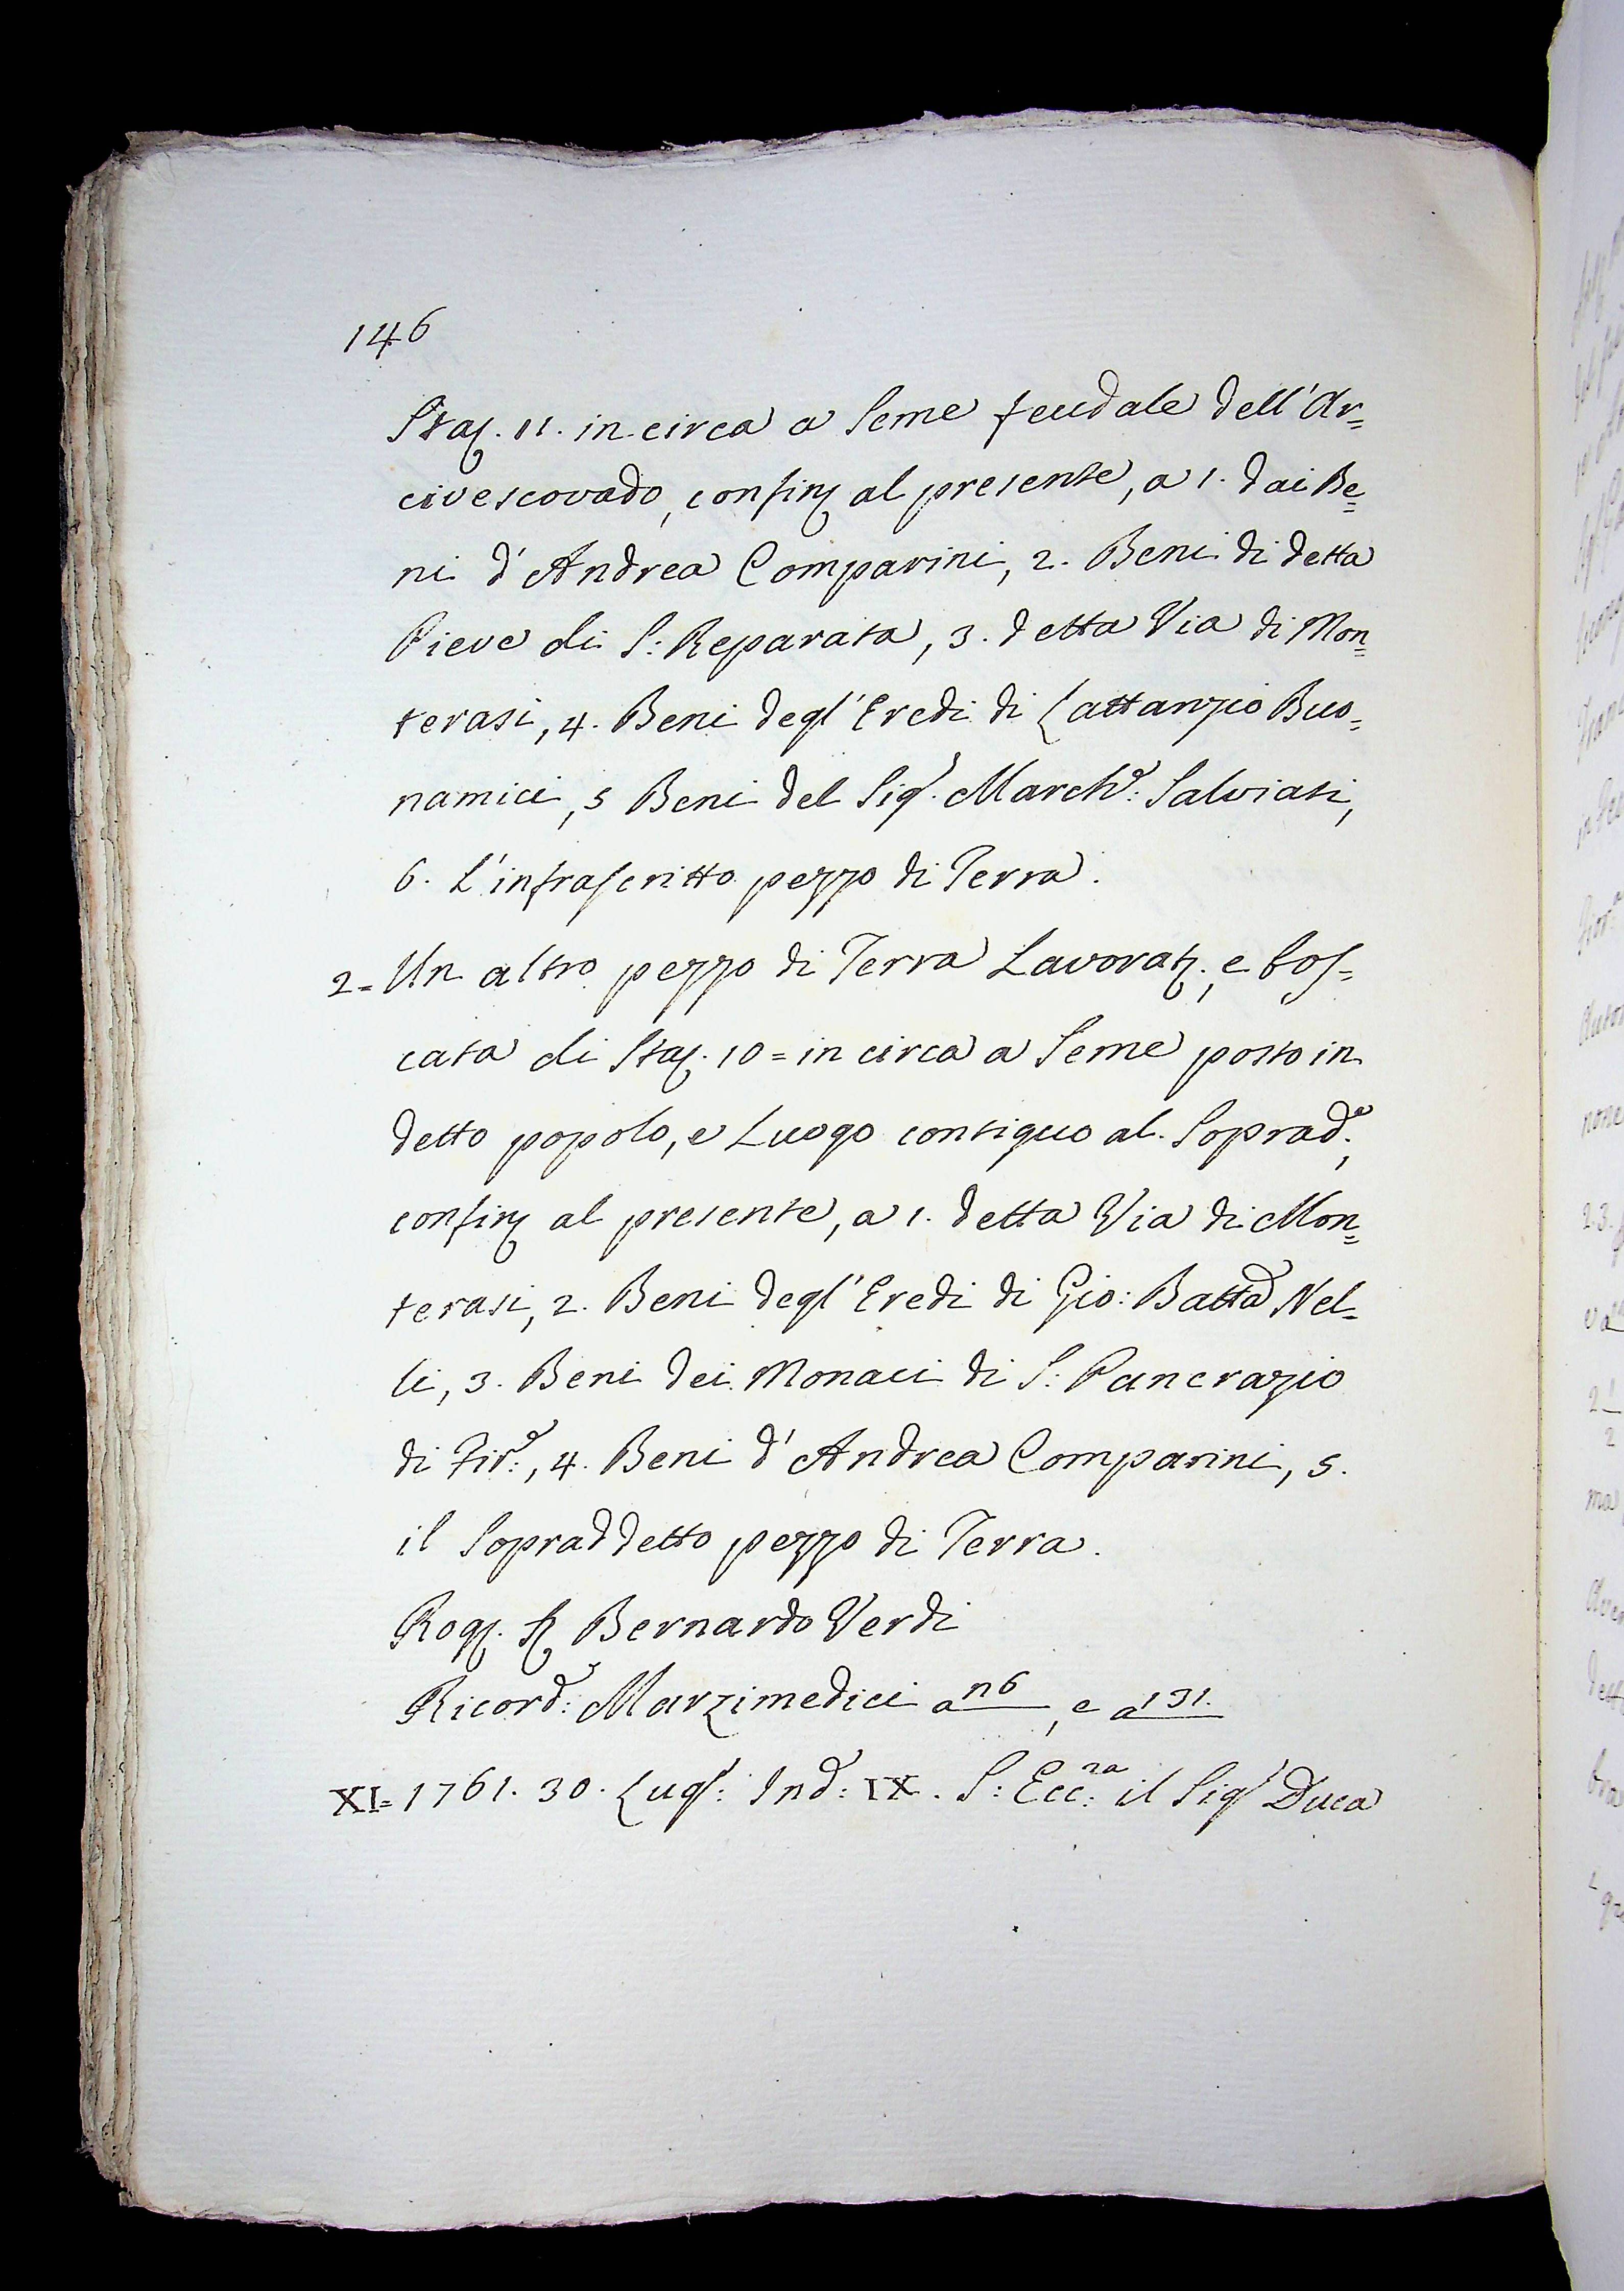 146
Staj. 11. in circa a Seme feudale dell'Ar=
civescovado, confinj al presente, a 1. dai Be=
ni d'Andrea Comparini, 2. Beni di detta
Pieve di S: Reparata, 3. detta Via di Mon=
terasi, 4. Beni degl'Eredi di Lattanzio Buo=
namici, 5 Beni del Sigr. Marche: Salviati,
6. L'infrascritto pezzo di Terra.
2= Un altro pezzo di Terra Lavoratj., e bos=
cata di Staj. 10 = in circa a Seme posto in
detto popolo, e Luogo contiguo al Soprado.,
confinj al presente, a 1. detta Via di Mon=
terasi, 2. Beni degl'Eredi di Gio: Batta Nel=
li, 3. Beni dei Monaci di S: Pancrazio
di Fire:, 4. Beni d'Andrea Comparini, 5.
il Sopraddetto pezzo di Terra.
Rogj. Bernardo Verdi
Ricord: Marzimedici a 116, e a 131.
XI= 1761. 30. Lugl: Ind: IX. S: Ecc:za il Sigr Duca